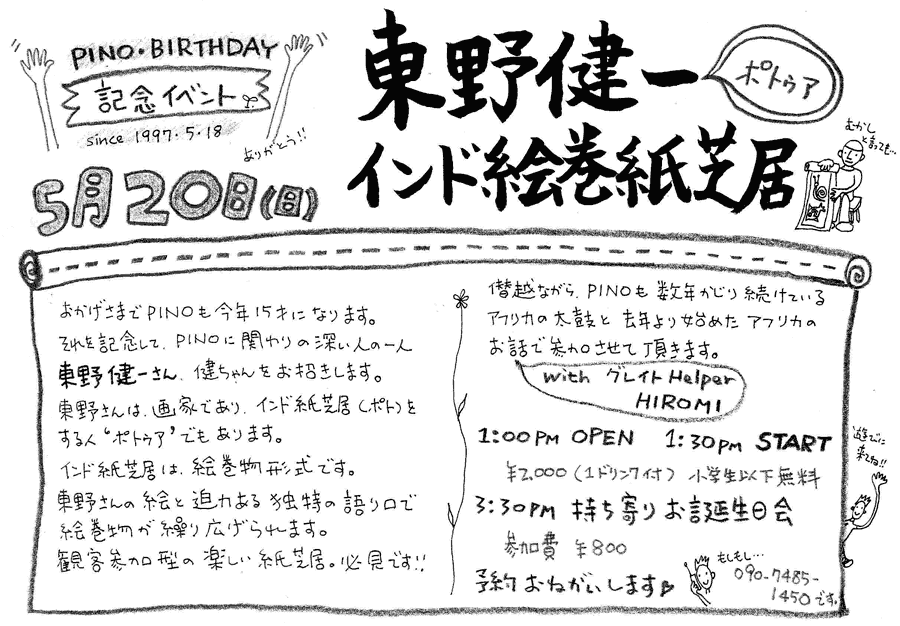 PINO・BIRTHDAY
記念イベント
since 1997.5.18
ありがとう!!
5月20日(日)
東野健一
ポトゥア
インド絵巻紙芝居
むかし
と言っても…
おかげさまでPINOも今年15才になります。
それを記念して、PINOに関わりの深い人の一人
東野健一さん、健ちゃんをお招きします。
東野さんは、画家であり、インド紙芝居(ポト)を
する人“ポトゥア”でもあります。
インド紙芝居は、絵巻物形式です。
東野さんの絵と迫力ある独特の語り口で
絵巻物が繰り広げられます。
観客参加型の楽しい紙芝居。必見です!!
僭越ながら、PINOも数年かじり続けている
アフリカの太鼓と去年より始めたアフリカの
お話で参加させて頂きます。
with グレイトHelper
HIROMI
1:00PM OPEN 1:30pm START
¥2,000(1ドリンク付) 小学生以下無料
3:30PM 持ち寄りお誕生日会
参加費 ¥800
予約おねがいします♡
もしもし…
090-7485-
1450です。
遊びに
来てね!!